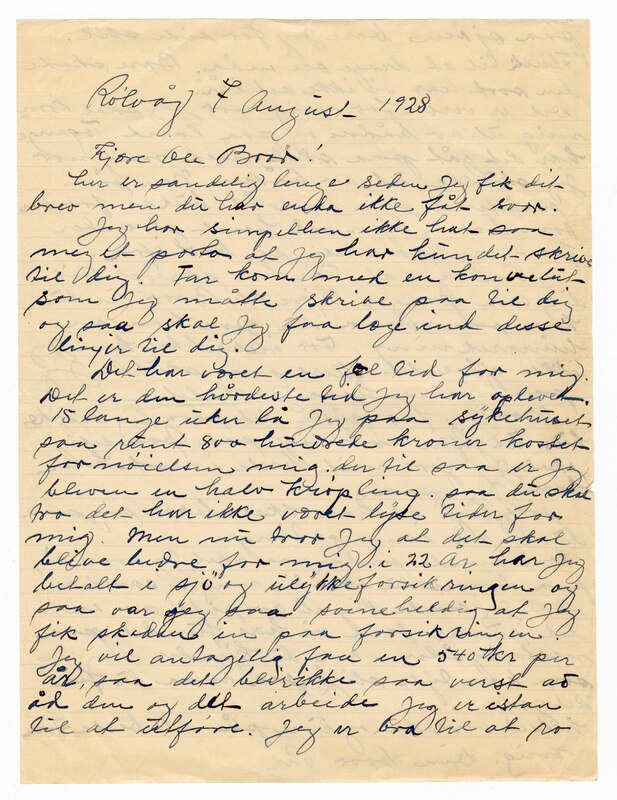 Rølvåg 7 August 1928
Kjære Ole Broor!
her er sandelig lenge seden Jeg fik dit
brev men du har enda ikke fåt svar.
Jeg har simpelhen ikke hat saa
meget porto at Jeg har kundet skrive
til dig. Far kom med en konvelut
som Jeg måtte skrive paa til dig
og saa skal Jeg faa læge ind disse
linjer til dig.
Det har været en fæl tid for mig.
Det er den hårdeste tid Jeg har oplevet.
15 lange uker lå Jeg paa sykehuset
saa runt 800 hundrede kroner kostet
fornøielsen mig. der til saa er Jeg
bleven en halv krøpling. saa du skal
tro det har ikke været lyse tider for
mig. Men nu tror Jeg at det skal
blive bedre for mig. i 22 år har Jeg
betalt i sjö og ulykkeforsikringen og
saa var Jeg saa svineheldig at Jeg
fik skaden in paa forsikringen.
Jeg vil antagelig faa en 540 kr per
år, saa det blir ikke saa verst
åd den og det arbeide Jeg er istan
til at utføre. Jeg er bra til at ro